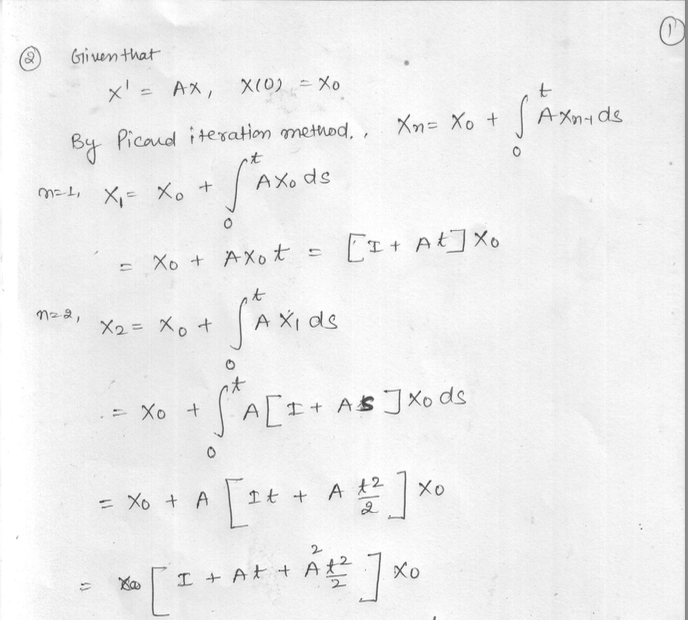 1
② Given that
X' = AX, X(0) = X0
By Picard iteration method, Xn = X0 + ∫₀ᵗ A Xn-1 ds
n=1, X1 = X0 + ∫₀ᵗ AX0 ds
= X0 + AX0 t = [I + At] X0
n=2, X2 = X0 + ∫₀ᵗ A X1 ds
= X0 + ∫₀ᵗ A[I + As] X0 ds
= X0 + A [It + A t²/2] X0
= [I + At + A² t²/2] X0